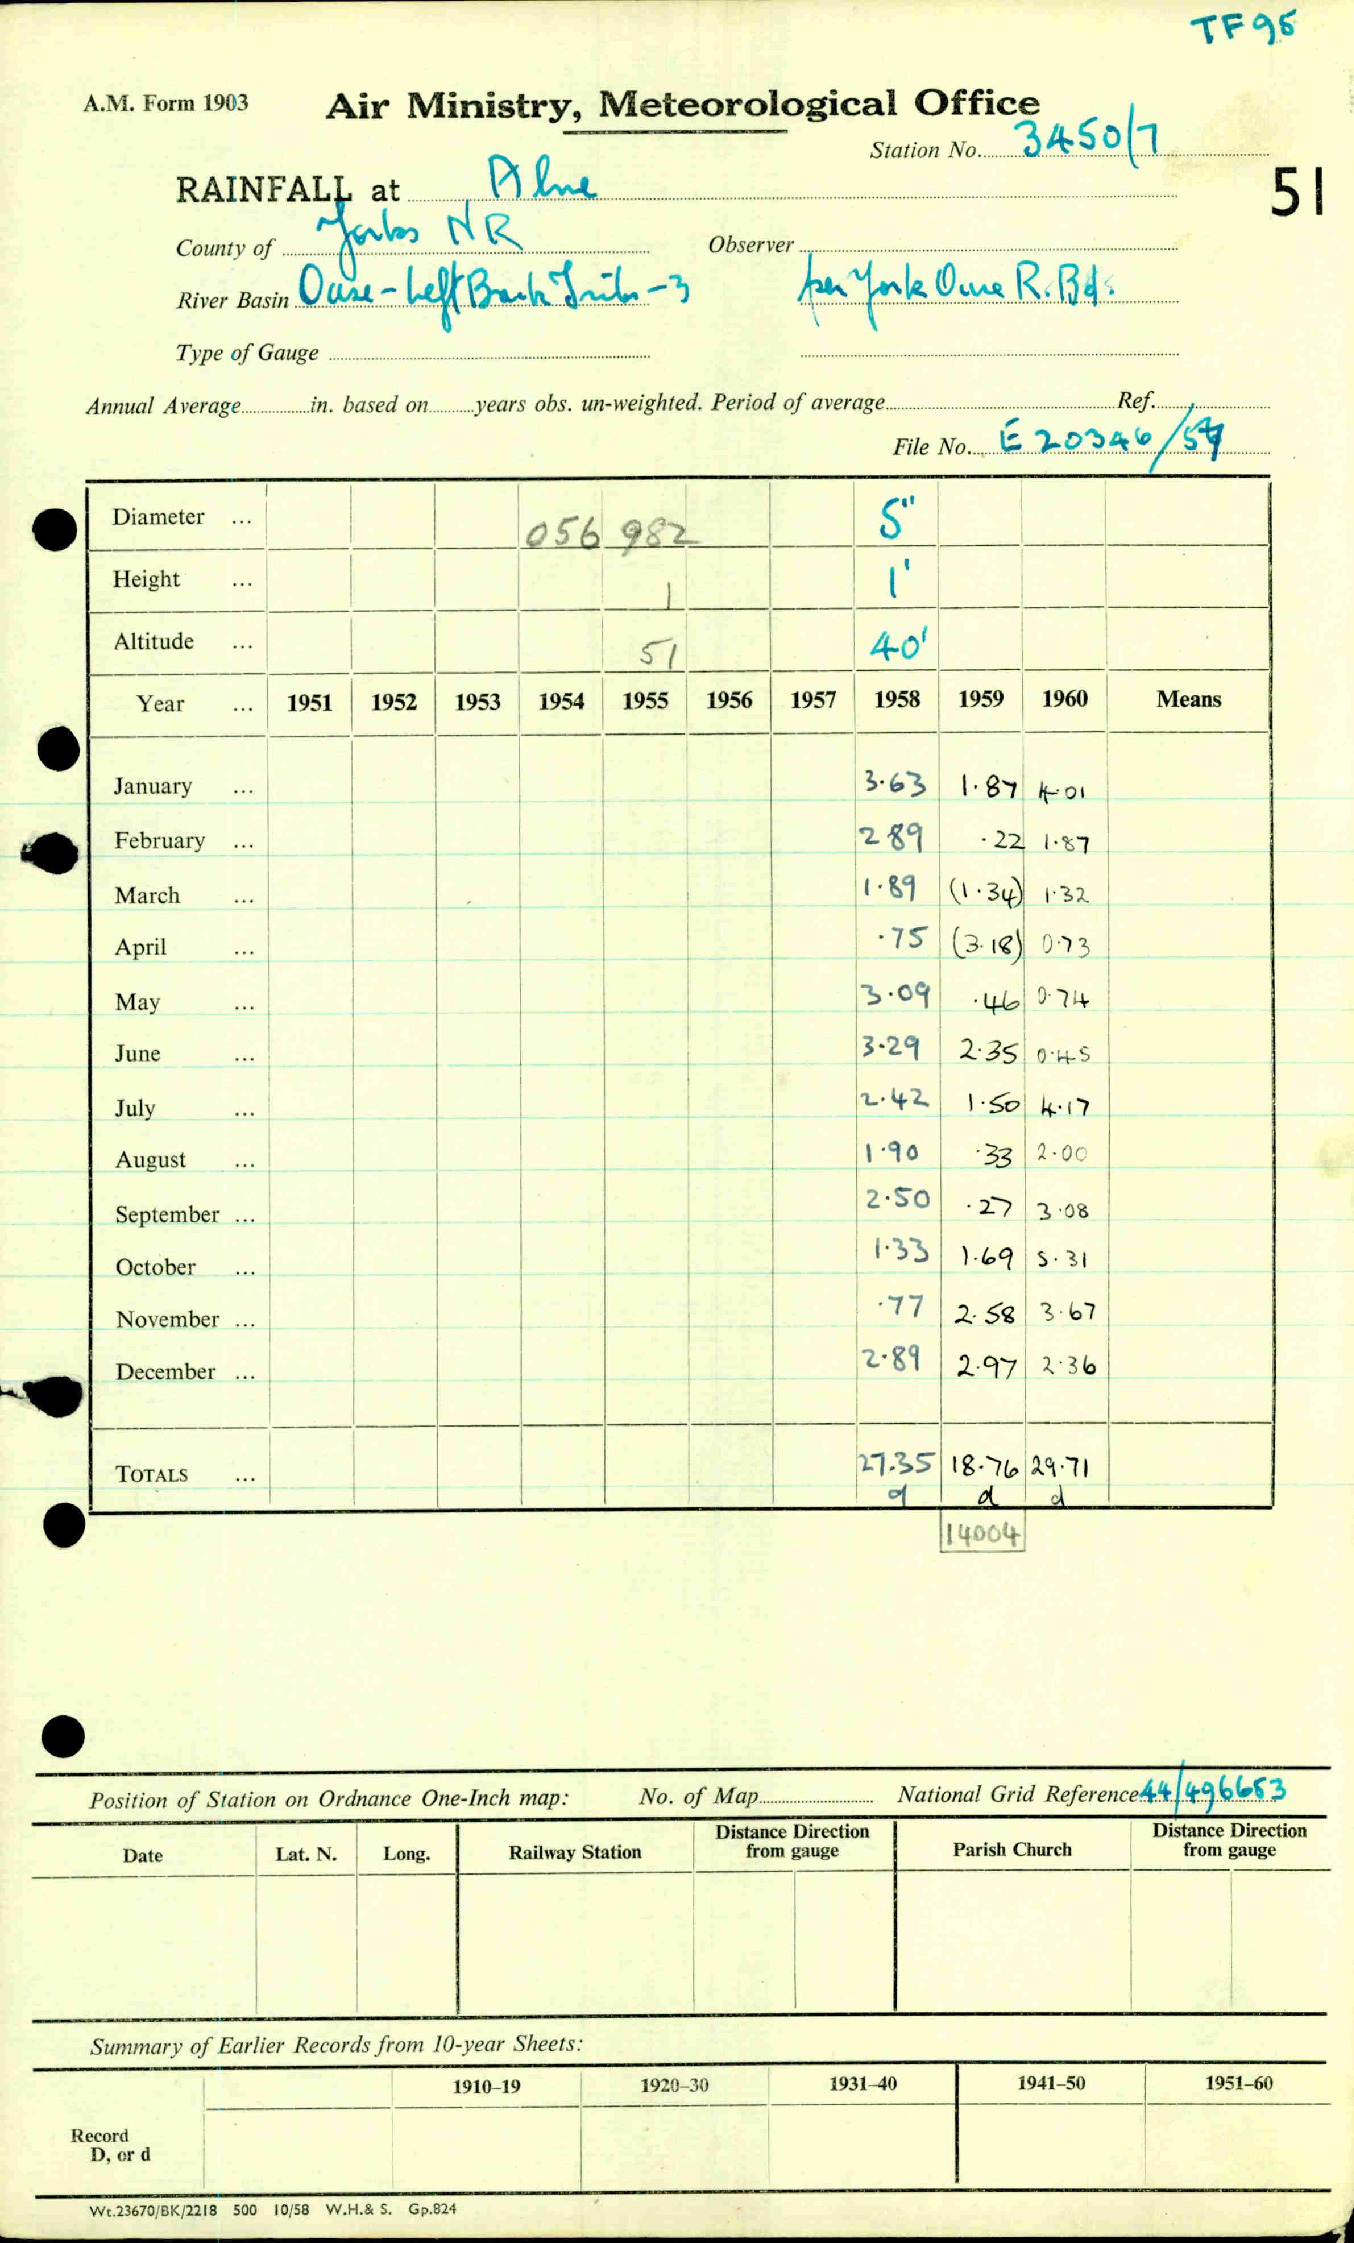 TF95
A.M. Form 1903 Air Ministry, Meteorological Office
Station No. 3450/7
RAINFALL at Alne 51
County of Yorks NR Observer
River Basin Ouse - Left Bank Tribs - 3 per York Ouse R. Bd.
Type of Gauge
Annual Average in. based on years obs. un-weighted. Period of average Ref.
File No. E 20346/59
Diameter ... 056 982 5"
Height ... 1 1'
Altitude ... 51 40'
Year ... 1951 1952 1953 1954 1955 1956 1957 1958 1959 1960 Means
January ... 3.63 1.87 4.01
February ... 2.89 .22 1.87
March ... 1.89 (1.34) 1.32
April ... .75 (3.18) 0.73
May ... 3.09 .46 0.74
June ... 3.29 2.35 0.45
July ... 2.42 1.50 4.17
August ... 1.90 .33 2.00
September ... 2.50 .27 3.08
October ... 1.33 1.69 5.31
November ... .77 2.58 3.67
December ... 2.89 2.97 2.36
TOTALS ... 27.35 18.76 29.71
d d d
14004
Position of Station on Ordnance One-Inch map: No. of Map National Grid Reference 44/496653
Date Lat. N. Long. Railway Station Distance Direction from gauge Parish Church Distance Direction from gauge
Summary of Earlier Records from 10-year Sheets:
1910–19 1920–30 1931–40 1941–50 1951–60
Record
D, or d
Wt.23670/BK/2218 500 10/58 W.H.& S. Gp.824